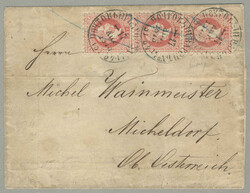 Herrn
Michel Wainmeister
Micheldorf
Ob. Oesterreich.